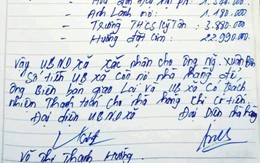 - Anh Lành nợ: 1.180.000
- Trường THCS Kỳ Tân: 3.880.000
- Hương đặt cơm: 22.990.000
Vậy UBND xã xác nhận cho ông Ng. Xuân
Số tiền UB xã còn nợ nhà hàng để
ông Biên bàn giao lại và UB xã có trách
nhiệm thanh toán cho nhà hàng chi có tiền
Đại diện UBND xã Đại diện nhà hàng
Võ Thị Thanh Hương